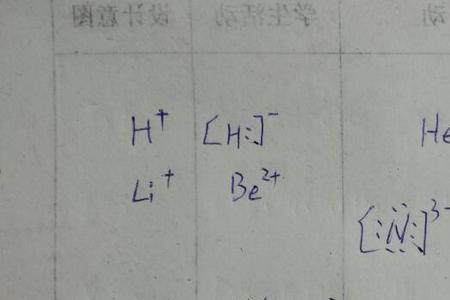 设计意图 学生活动 动
H⁺ [H:]⁻ He
Li⁺ Be²⁺
[:N:]³⁻